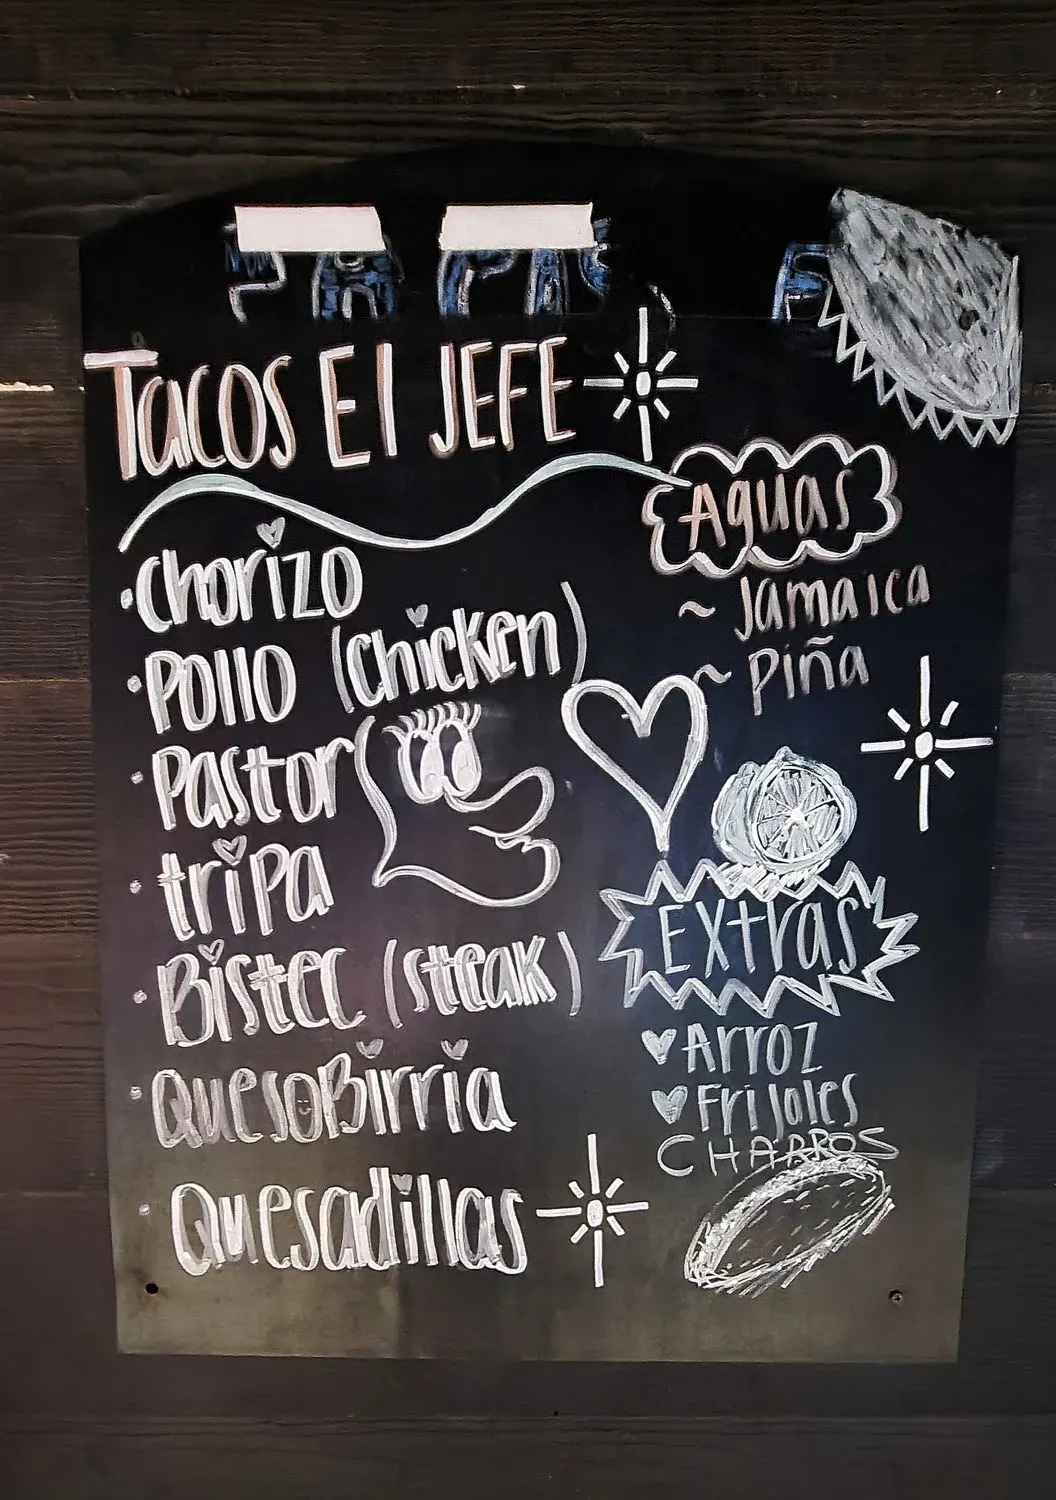 Tacos El JEFE
• Chorizo
• Pollo (chicken)
• Pastor
• tripa
• Bistec (steak)
• QuesoBirria
• Quesadillas
Aguas
~ Jamaica
~ Piña
Extras
Arroz
Frijoles
CHARROS